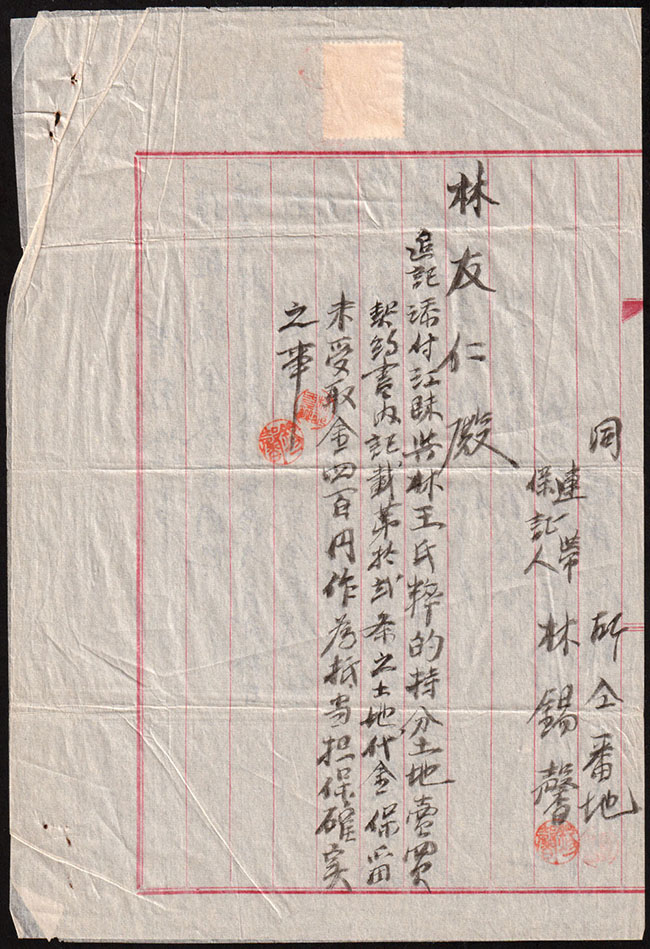 同所仝番地
連帶
保証人 林錫馨
林友仁殿
追記添付江陳氏林王氏粹的持分土地賣買
契約書內記載第拾弍条之土地代金保留
未受取金四百円作為抵当担保確実
之事